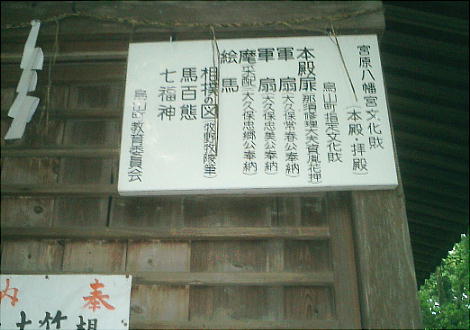 宮原八幡宮文化財
(本殿・拝殿)
烏山町指定文化財
本殿扉(那須修理大夫資胤花押)
軍扇(大久保常春公奉納)
軍扇(大久保忠美公奉納)
麾(采配)(大久保忠郷公奉納)
絵馬
相撲の図(牧野牧陵筆)
馬百態
七福神
烏山町教育委員会
奉
納